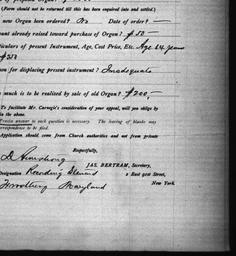 (Form should not be returned till this has been enquired into and settled.)
new Organ been ordered? No Date of order? —
ount already raised toward purchase of Organ? $ 50 —
ticulars of present Instrument, Age, Cost Price, Etc. Age 24 years
$250
on for displacing present instrument? Inadequate
much is to be realized by sale of old Organ? $200.—
To facilitate Mr. Carnegie's consideration of your appeal, will you oblige by
in the above.
Precise answer to each question is necessary. The leaving of blanks may
rrespondence to be filed.
Application should come from Church authorities and not from private
Respectfully,
Armstrong
JAS. BERTRAM, Secretary,
Designation Recording Steward 2 East 91st Street,
Maryland New York.